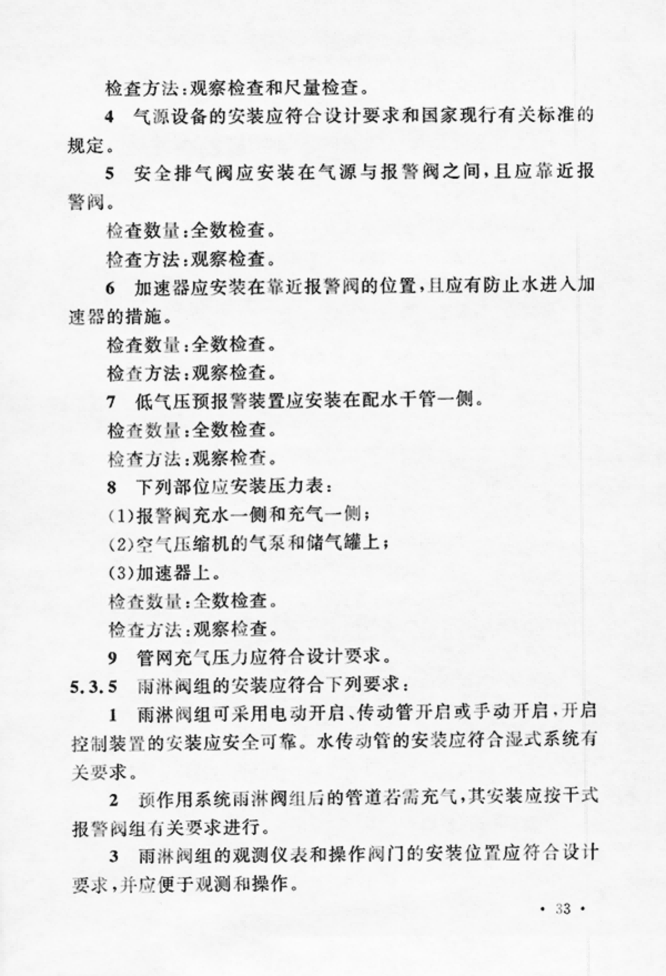 检查方法:观察检查和尺量检查。
4 气源设备的安装应符合设计要求和国家现行有关标准的
规定。
5 安全排气阀应安装在气源与报警阀之间,且应靠近报
警阀。
检查数量:全数检查。
检查方法:观察检查。
6 加速器应安装在靠近报警阀的位置,且应有防止水进入加
速器的措施。
检查数量:全数检查。
检查方法:观察检查。
7 低气压预报警装置应安装在配水干管一侧。
检查数量:全数检查。
检查方法:观察检查。
8 下列部位应安装压力表:
(1)报警阀充水一侧和充气一侧;
(2)空气压缩机的气泵和储气罐上;
(3)加速器上。
检查数量:全数检查。
检查方法:观察检查。
9 管网充气压力应符合设计要求。
5.3.5 雨淋阀组的安装应符合下列要求:
1 雨淋阀组可采用电动开启、传动管开启或手动开启,开启
控制装置的安装应安全可靠。水传动管的安装应符合湿式系统有
关要求。
2 预作用系统雨淋阀组后的管道若需充气,其安装应按干式
报警阀组有关要求进行。
3 雨淋阀组的观测仪表和操作阀门的安装位置应符合设计
要求,并应便于观测和操作。
· 33 ·